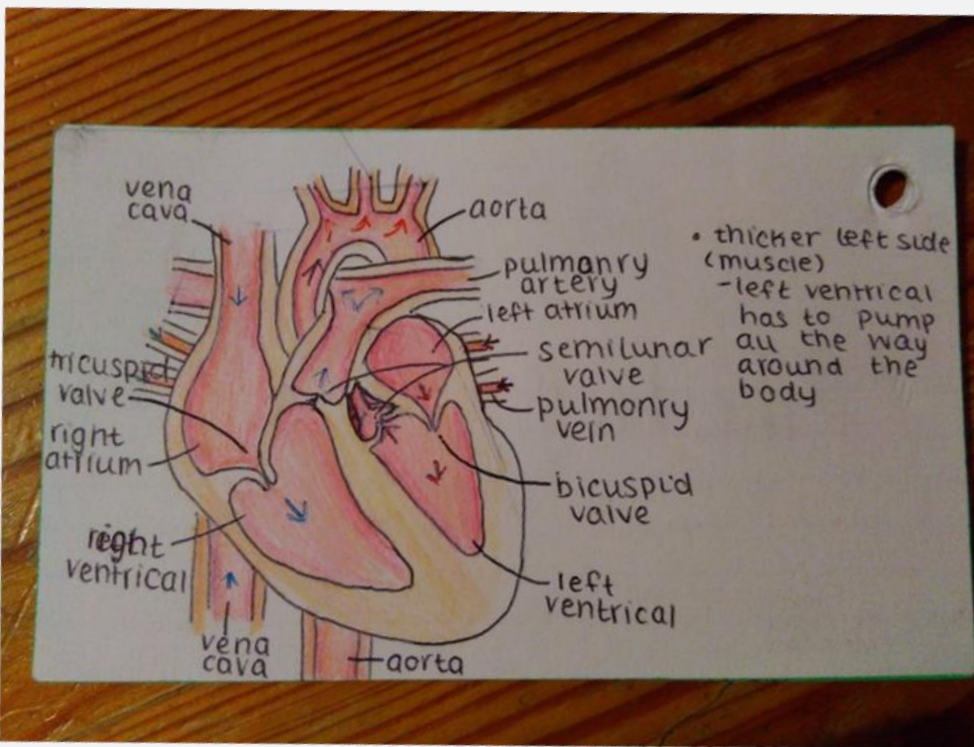 vena
cava
aorta
pulmanry
artery
left atrium
semilunar
valve
tricuspid
valve
pulmonry
vein
right
atrium
bicuspid
valve
right
ventrical
left
ventrical
vena
cava
aorta
• thicker left side
(muscle)
-left ventrical
has to pump
all the way
around the
body